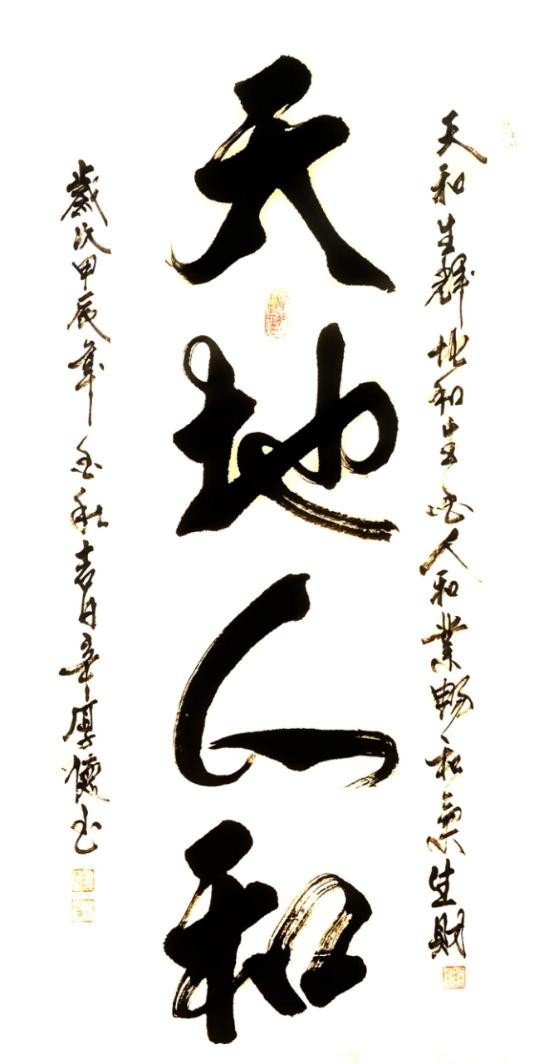 天和生輝地和生金人和業畅和氣生財
天地人和
歲次甲辰年金秋吉日厚懷